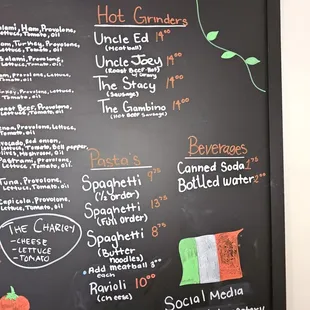 Ham, Provolone,
Lettuce, Tomato, oil
Ham, Turkey, Provolone,
Lettuce, Tomato, oil
Salami, Ham, Provolone,
Lettuce, Tomato, oil
Ham, Provolone, Lettuce,
Tomato, oil
Turkey, Provolone, Lettuce,
Tomato, oil
Roast Beef, Provolone,
Lettuce, Tomato, oil
Provolone, Lettuce,
Tomato, oil
Avocado, Red onion,
Lettuce, Tomato, Bell pepper,
olives, Mushroom, oil
Pastrami, Provolone,
Lettuce, Tomato, oil
Tuna, Provolone,
Lettuce, Tomato, oil
Capicola, Provolone,
Lettuce, Tomato, oil
THE CHARLEY
-CHEESE
-LETTUCE
-TOMATO
Hot Grinders
Uncle Ed 14.00
(Meatball)
Uncle Joey 14.00
(Roast Beef-Hot)
w/ Gravy
The Stacy 14.00
(Sausage)
The Gambino 14.00
(Hot Beef Sausage)
Pasta's
Spaghetti 9.75
(1/2 order)
Spaghetti 13.75
(Full order)
Spaghetti 8.75
(Butter
noodles)
• Add meatball 3.00
each
Ravioli 10.00
(cheese)
Beverages
Canned Soda 1.75
Bottled water 2.00
Social Media